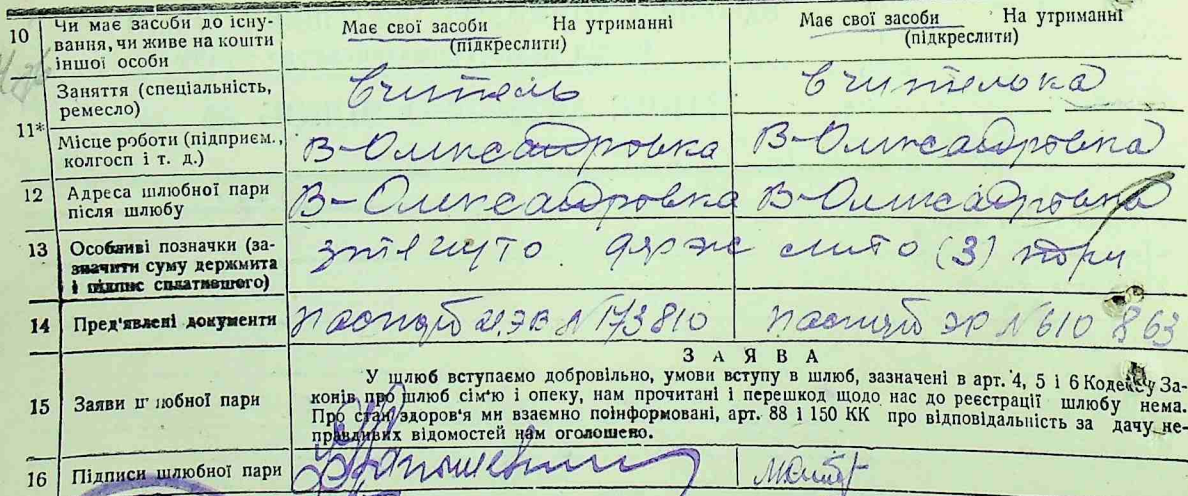 10 Чи має засоби до існу-
вання, чи живе на кошти
іншої особи
Має свої засоби На утриманні
(підкреслити)
Має свої засоби На утриманні
(підкреслити)
11* Заняття (спеціальність,
ремесло)
Вчитель
Вчителька
Місце роботи (підприєм.,
колгосп і т. д.)
В-Олександровка
В-Олександровка
12 Адреса шлюбної пари
після шлюбу
В-Олександровка
В-Олександровка
13 Особливі позначки (за-
значити суму держмита
і підпис сплатившого)
держ мито (3) три
14 Пред'явлені документи
Паспорт № 173810
Паспорт ЭР № 610 863
15 Заяви шлюбної пари
ЗАЯВА
У шлюб вступаємо добровільно, умови вступу в шлюб, зазначені в арт. 4, 5 і 6 Кодексу За-
конів про шлюб сім'ю і опеку, нам прочитані і перешкод щодо нас до реєстрації шлюбу нема.
Про стан здоров'я ми взаємно поінформовані, арт. 88 і 150 КК про відповідальність за дачу не-
правдивих відомостей нам оголошено.
16 Підписи шлюбної пари